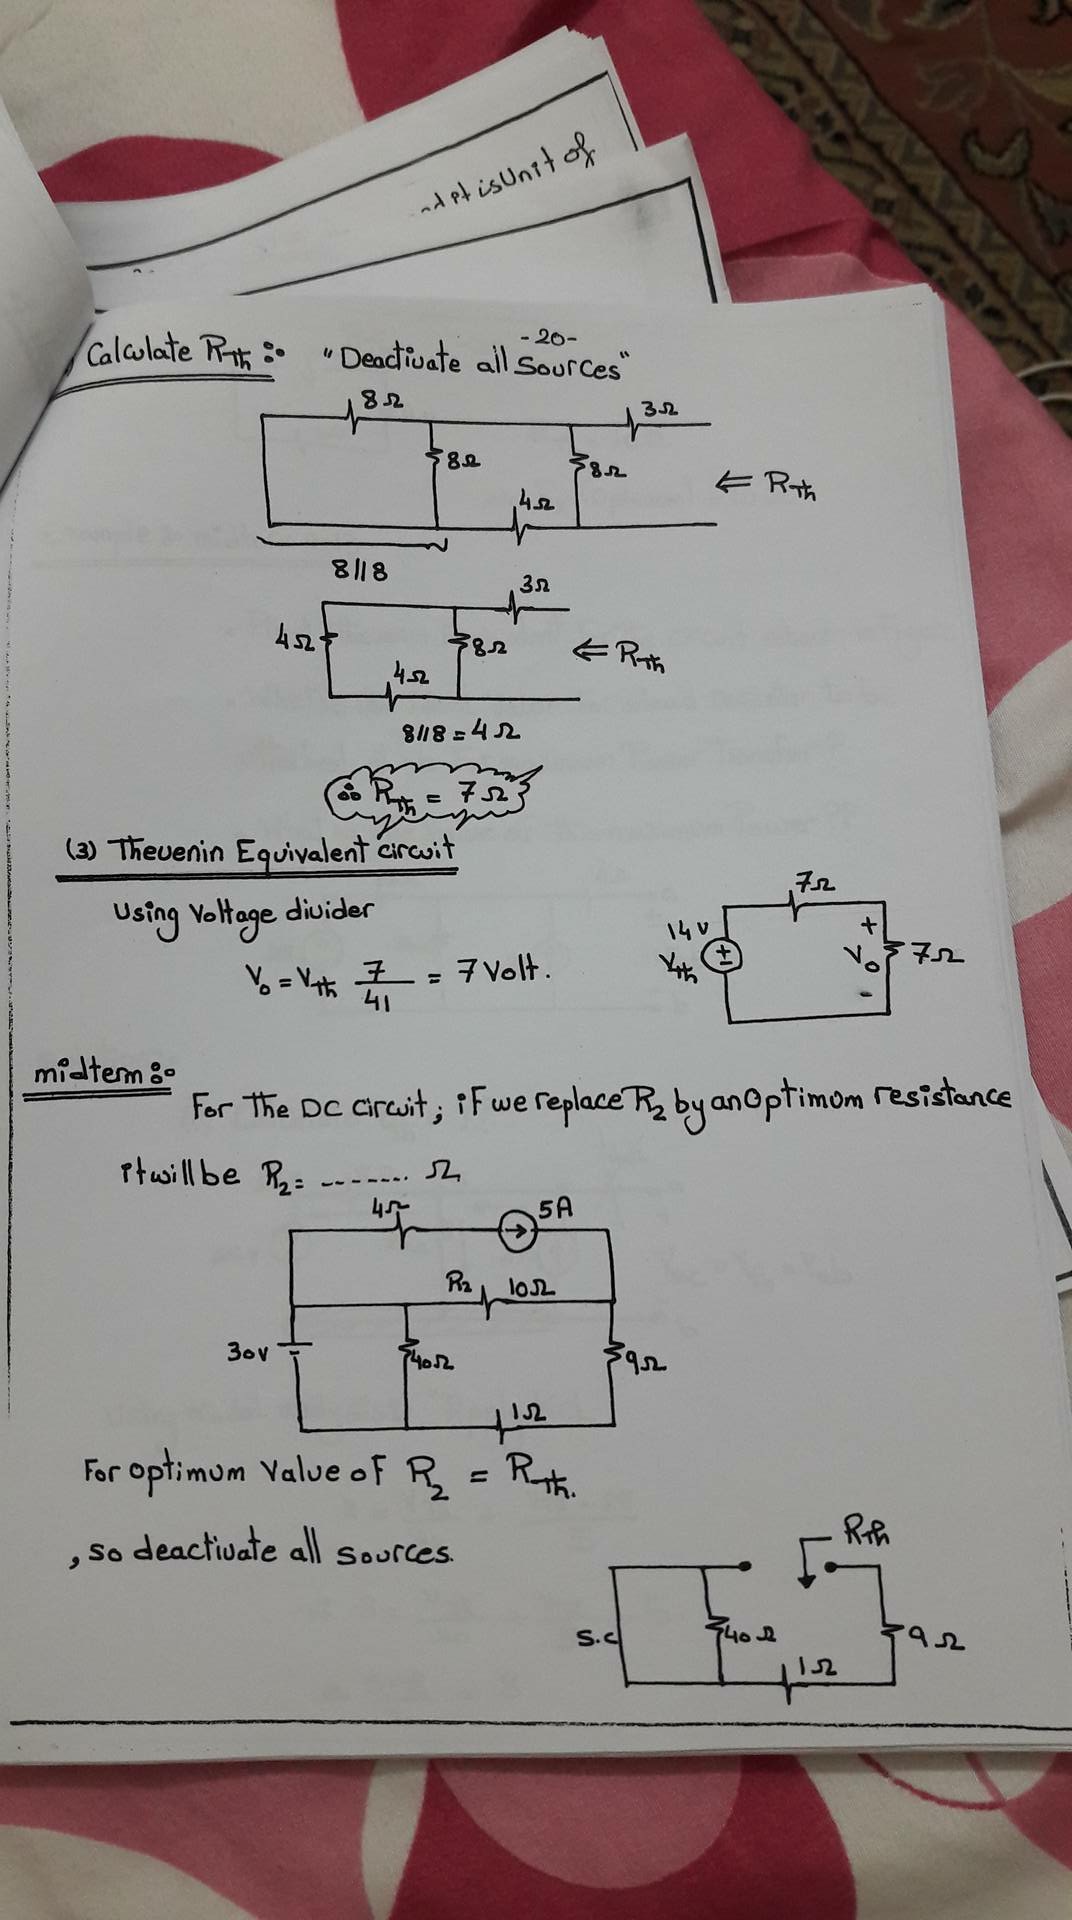 ..d pt is Unit of
-20-
Calculate RTh :- "Deactivate all Sources"
8Ω
3Ω
8Ω
8Ω
⇐ RTh
4Ω
8//8
3Ω
4Ω
8Ω
⇐ RTh
4Ω
8//8 = 4Ω
∴ RTh = 7Ω
(3) Thevenin Equivalent circuit
7Ω
Using Voltage divider
14v
+
Vth
Vo
7Ω
-
Vo = VTh 7/41 = 7 Volt.
midterm :-
For The DC circuit, if we replace R2 by an Optimom resistance
it will be R2 = ........ Ω
4Ω
5A
R2 10Ω
30v
40Ω
9Ω
1Ω
For optimum Value of R2 = RTh.
RTh
, so deactivate all sources.
S.C
40Ω
9Ω
1Ω